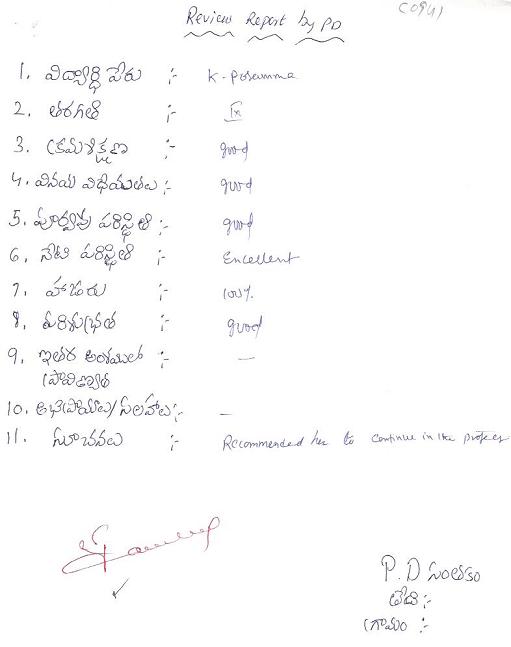 (C094)
Review Report by PD
1. విద్యార్థి పేరు :- K. Posamma
2. తరగతి :- IX
3. క్రమశిక్షణ :- good
4. వినయ విధేయతలు :- good
5. పూర్వపు పరిస్థితి :- good
6. నేటి పరిస్థితి :- Encellent
7. హాజరు :- 100%
8. పరిశుభ్రత :- good
9. ఇతర అంశములో :- —
ప్రావిణ్యత
10. అభిప్రాయాలు/సలహాలు :- —
11. సూచనలు :- Recommended her to continue in the project
P.D సంతకం
తేది :-
గ్రామం :-